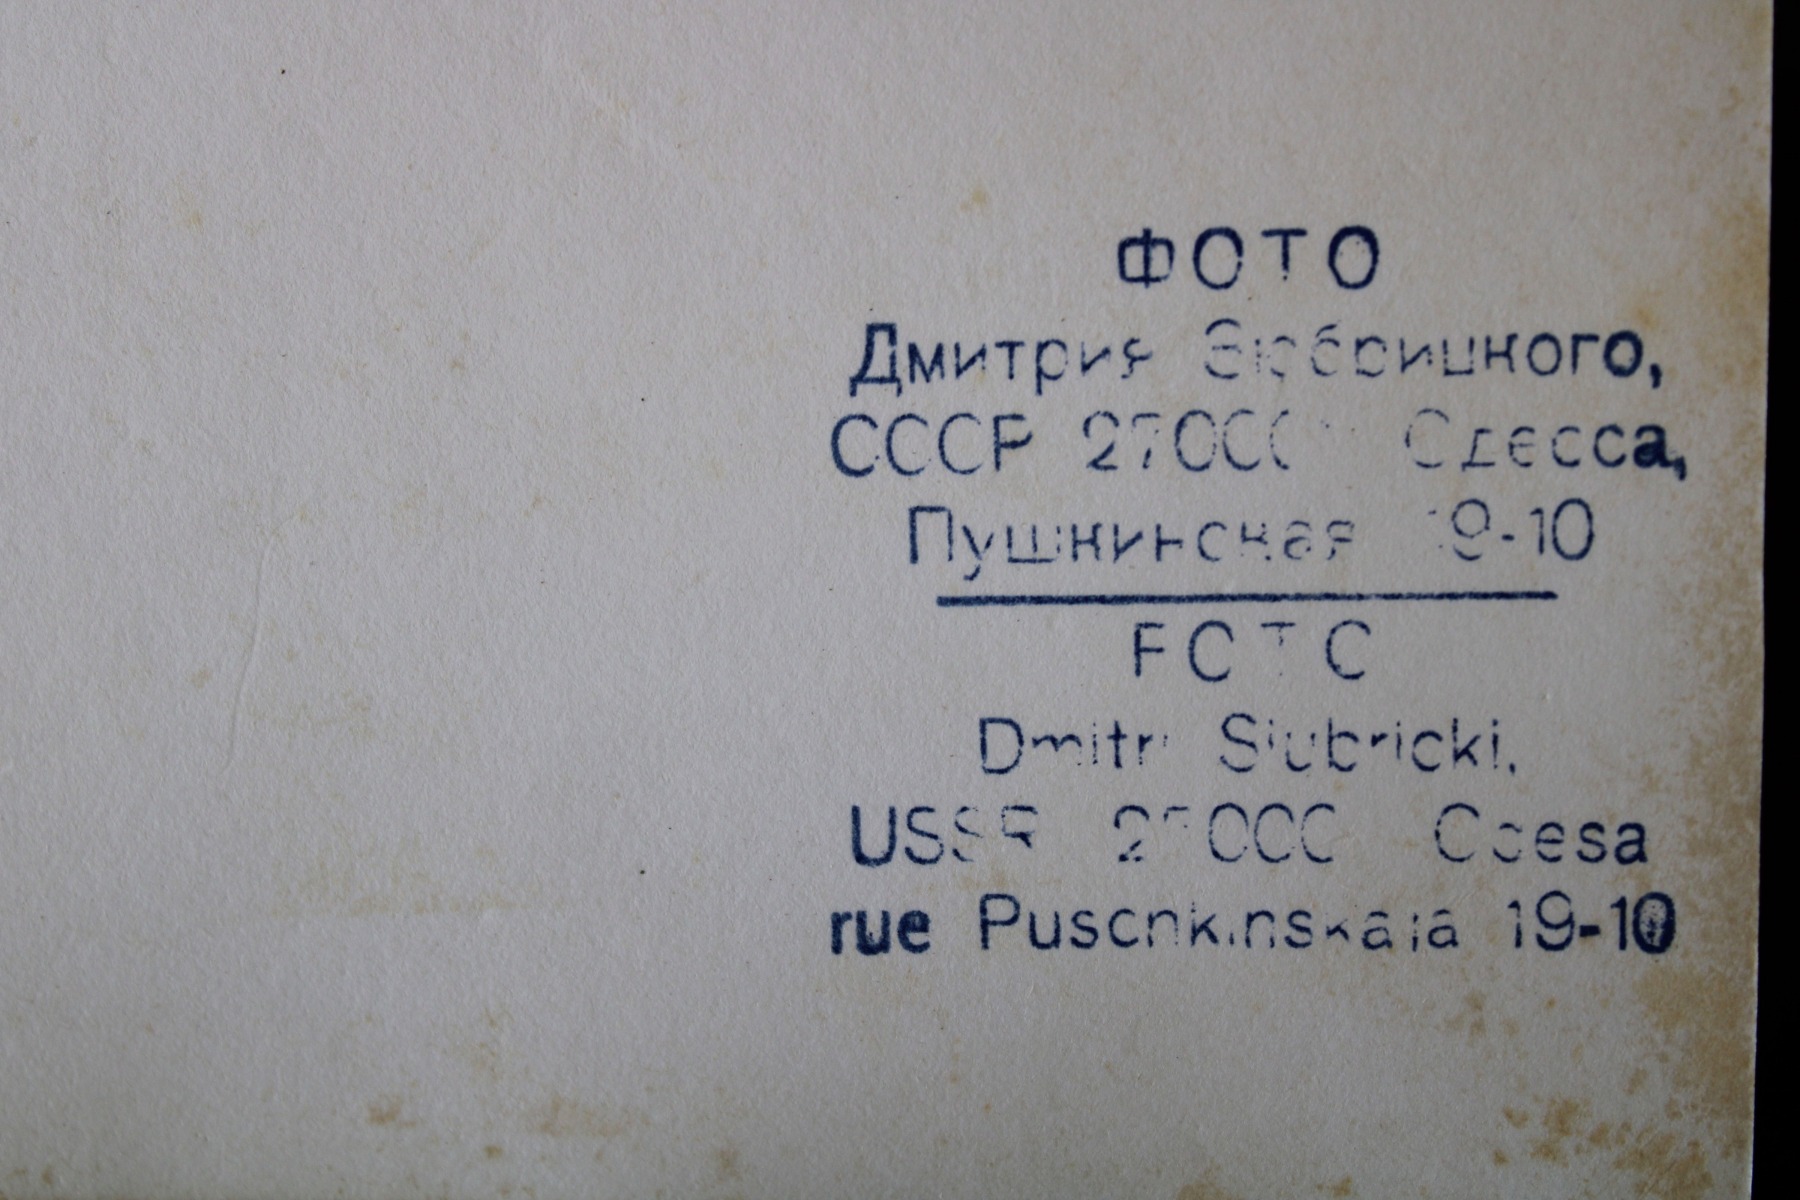 ФОТО
Дмитрия Зюбрицкого,
СССР Одесса,
Пушкинская 19-10
FOTO
Dmitri Siubricki,
USSR Odesa
rue Puschkinskaja 19-10